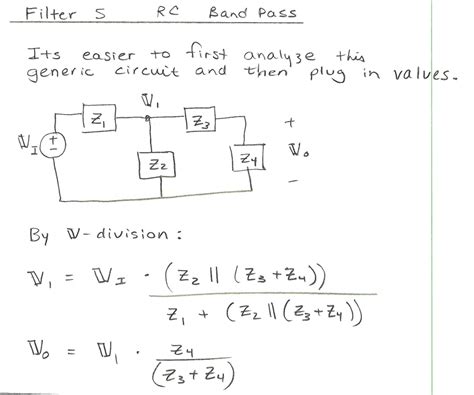 Filter 5 RC Band Pass
Its easier to first analyze this
generic circuit and then plug in values.
V₁
Z₁
Z₃
+
V_I
+
−
Z₂
Z₄
V₀
−
By V-division:
V₁ = V_I · (Z₂ || (Z₃+Z₄))
Z₁ + (Z₂ || (Z₃+Z₄))
V₀ = V₁ · Z₄
(Z₃+Z₄)